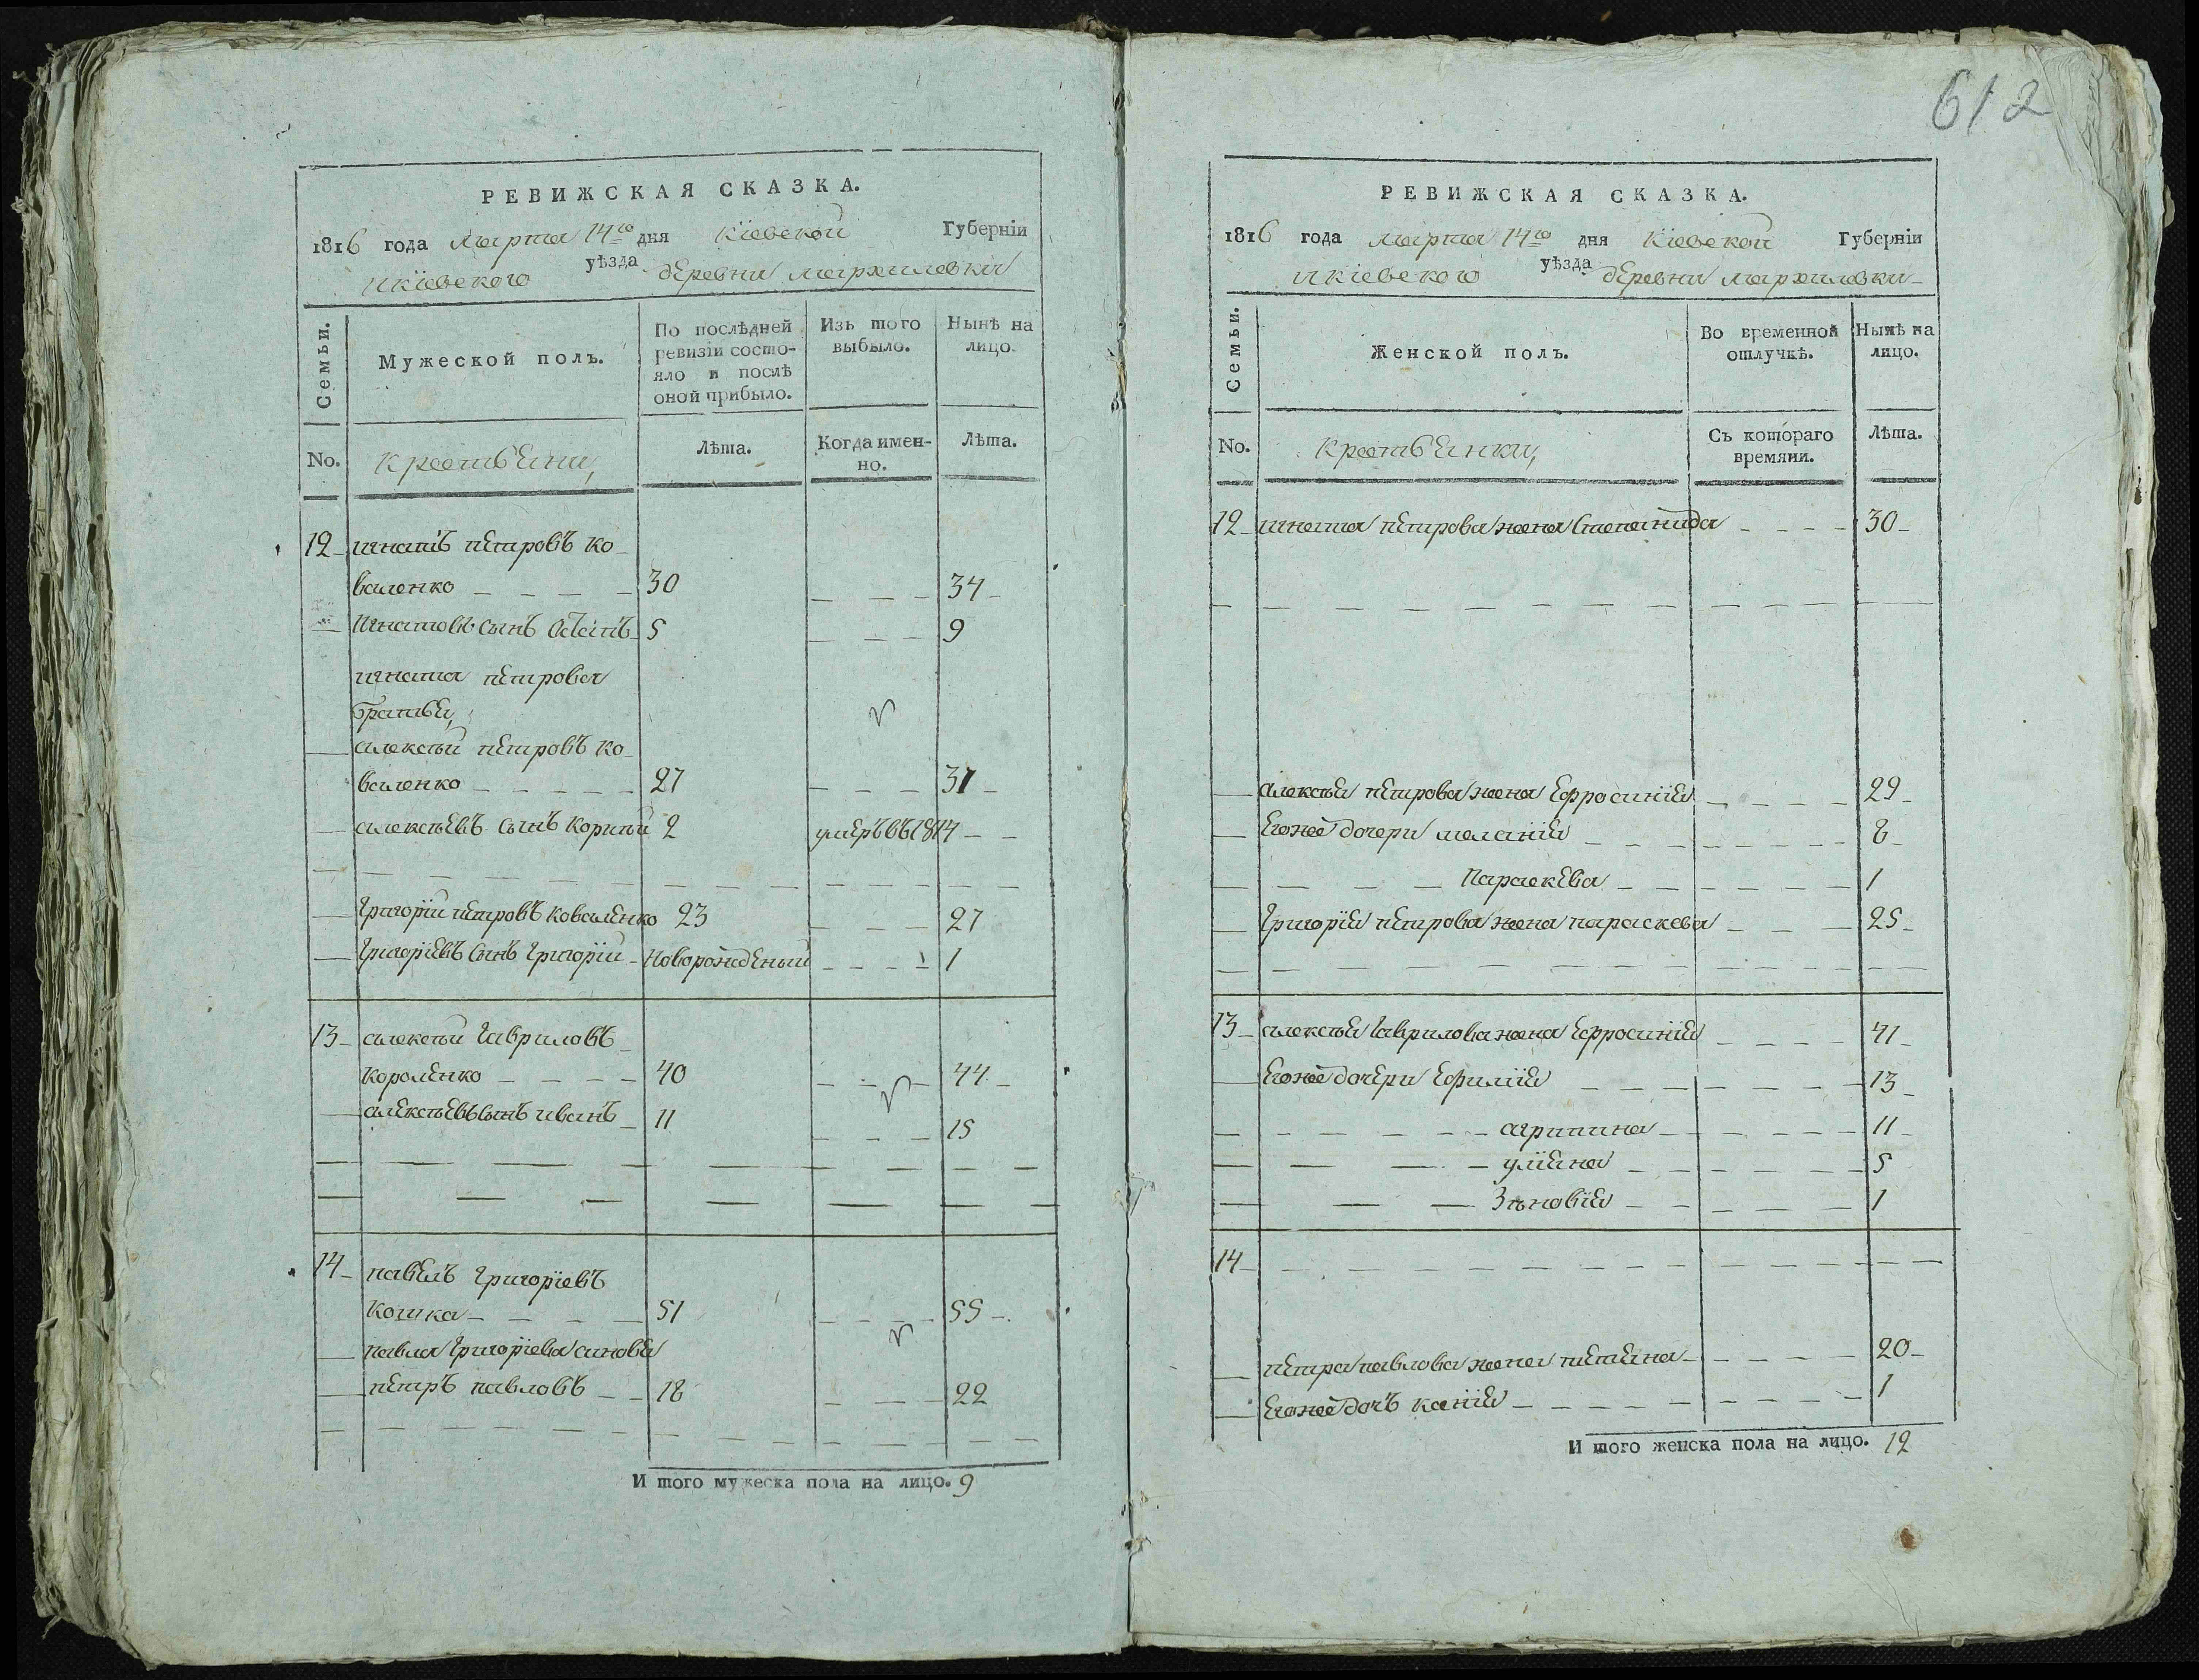 612
РЕВИЖСКАЯ СКАЗКА.
1816 года марта 14го дня Кіевской Губерніи
икіевского уѣзда деревни мархалевки
Семьи. Мужеской полъ. По послѣдней ревизіи состояло и послѣ оной прибыло. Изъ того выбыло. Нынѣ на лицо.
No. крестьяни, Лѣта. Когда именно. Лѣта.
12 игнатъ петровъ ко
валенко 30 34
Игнатовъ сынъ Остапъ 5 9
игната петрова
братья,
алексѣй петровъ ко
валенко 27 31
алексѣевъ сынъ Корнѣй 2 умеръ въ 1814
григорїй петровъ коваленко 23 27
григорїевъ сынъ григорїй новорожденый 1
13 алексѣй гавриловъ
короленко 40 44
алексѣевъ сынъ иванъ 11 15
14 павелъ григорїевъ
кошка 51 55
павла григорїева синовя
петръ павловъ 18 22
И того мужеска пола на лицо. 9
РЕВИЖСКАЯ СКАЗКА.
1816 года марта 14го дня Кіевской Губерніи
икіевского уѣзда деревни мархаловки
Семьи. Женской полъ. Во временной отлучкѣ. Нынѣ на лицо.
No. крестьянки, Съ котораго времяни. Лѣта.
12 игната петрова жена Степанида 30
алексѣя петрова жена Ефросинїя 29
Егоже дочери меланїя 8
Параскева 1
григорїя петрова жена параскева 25
13 алексѣя гаврилова жена Ефросинїя 41
Егоже дочери Ефимїя 13
агрипина 11
улїяна 5
Зѣновїя 1
14
петра павлова жена тетяна 20
Егоже дочъ 1
И того женска пола на лицо. 12